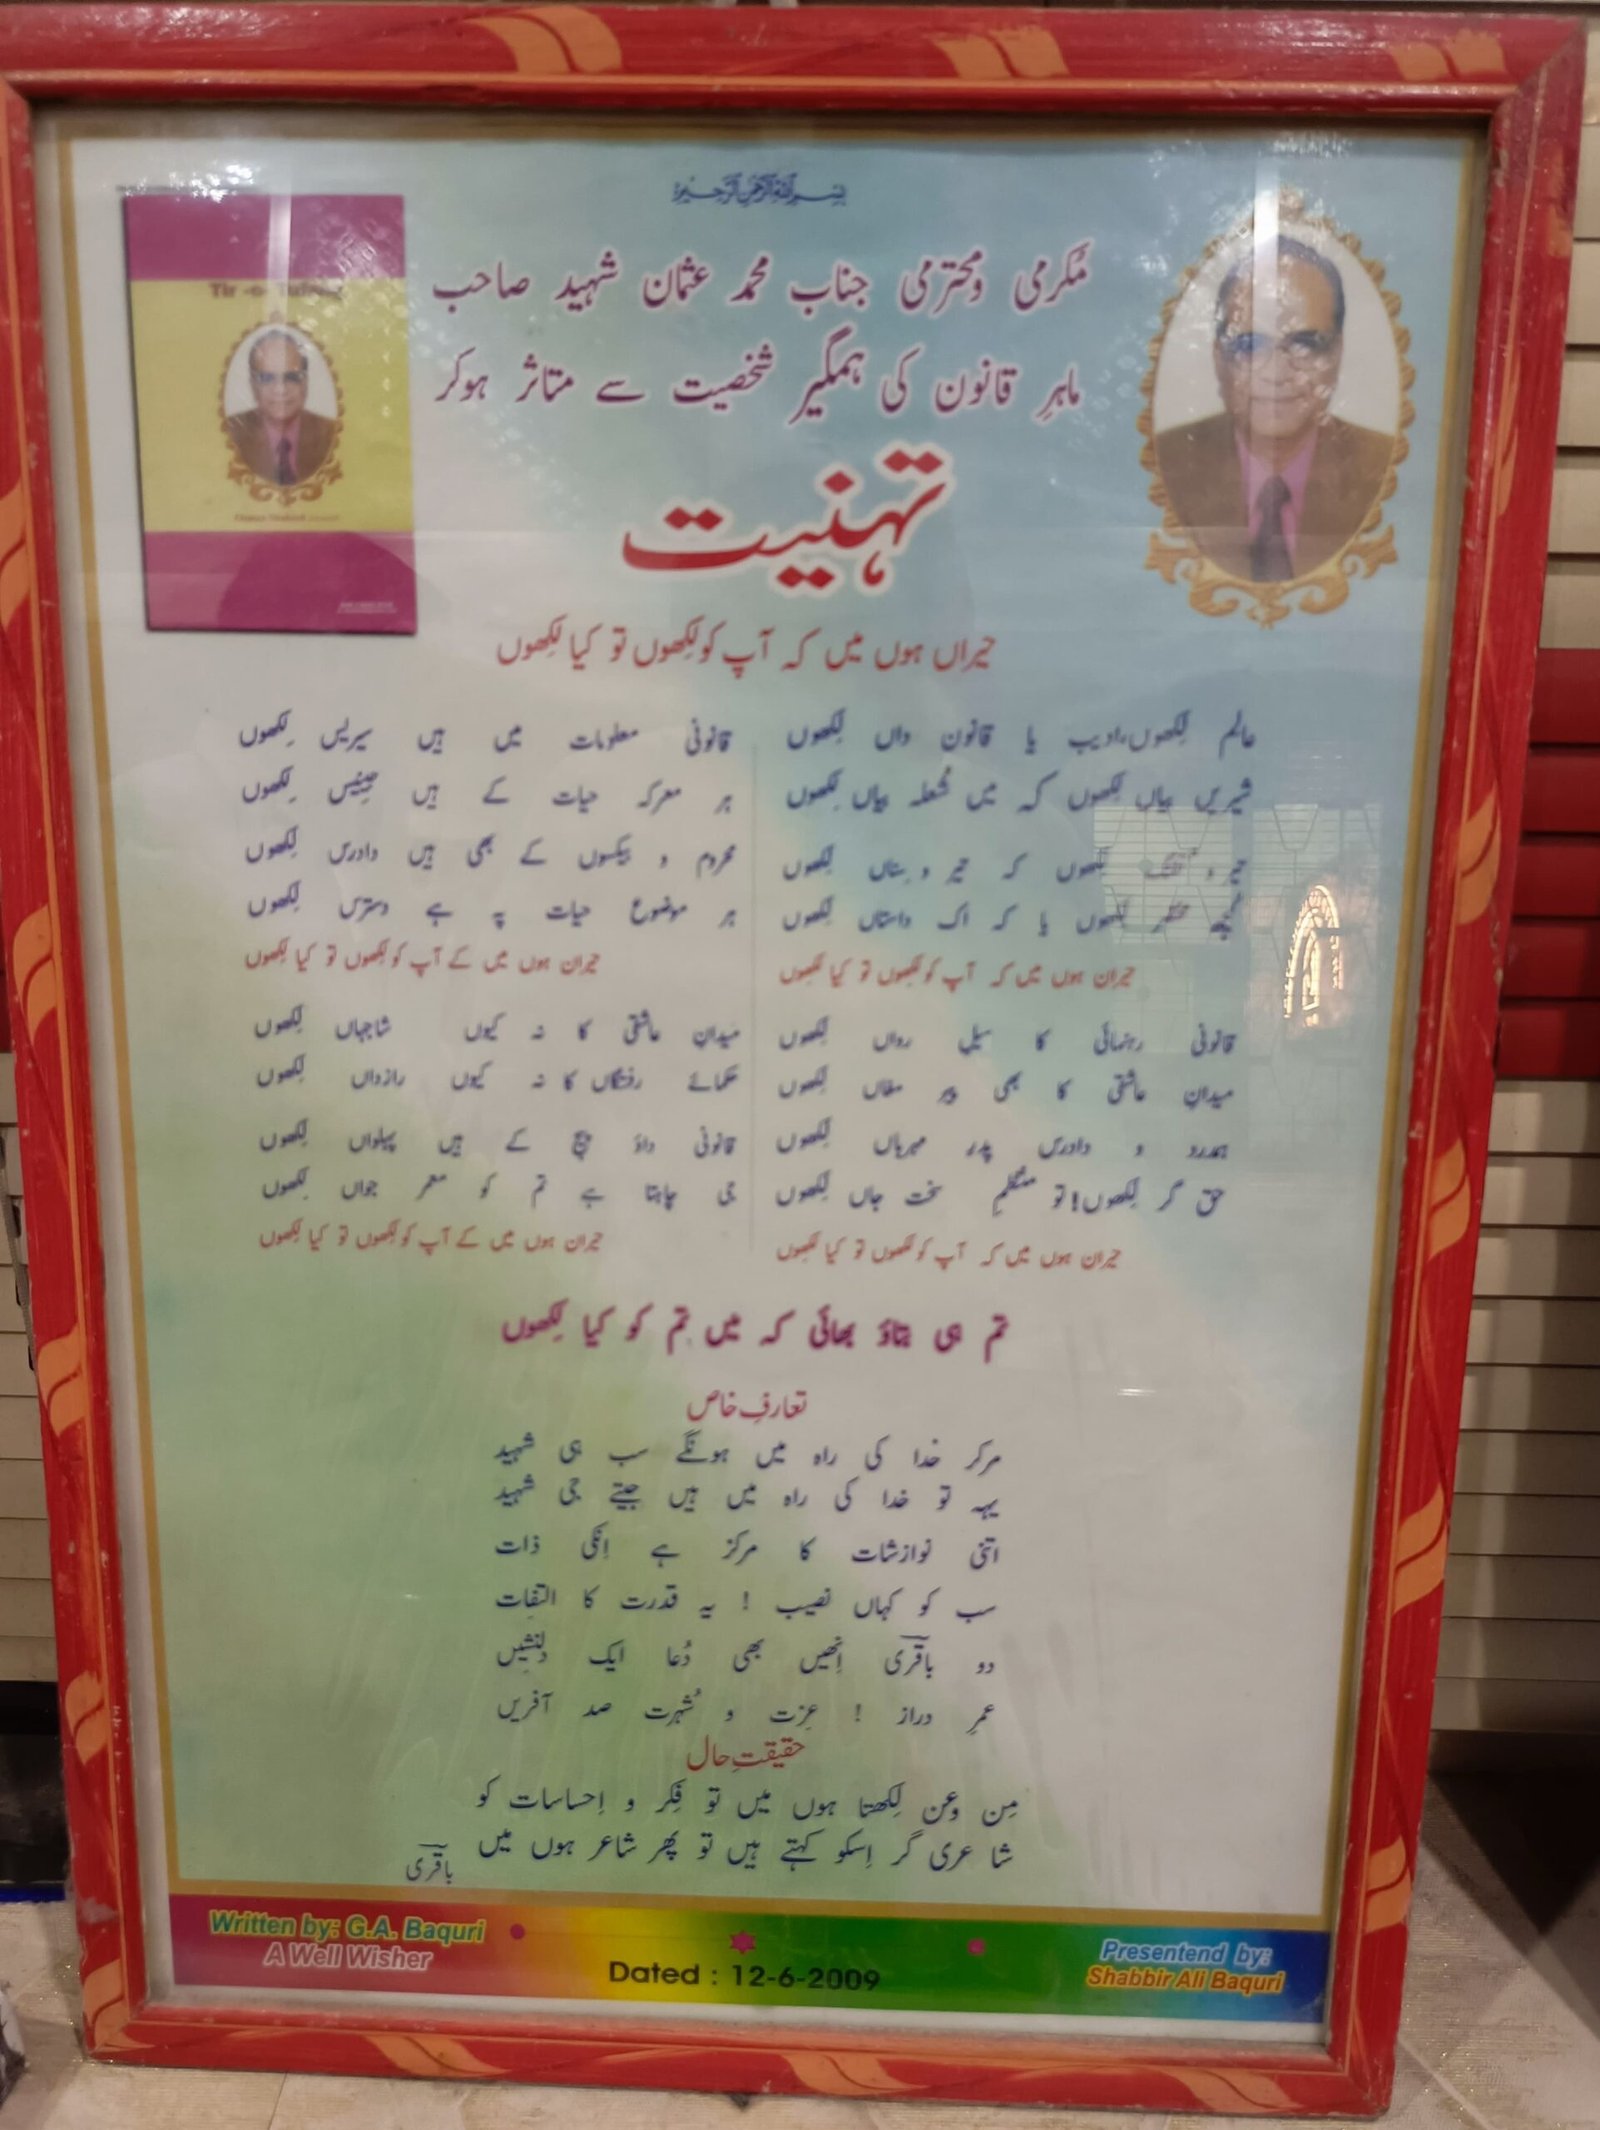 بسم اللہ الرحمن الرحیم
مکرمی ومحترمی جناب محمد عثمان شہید صاحب
ماہرِ قانون کی ہمگیر شخصیت سے متاثر ہوکر
تہنیت
حیراں ہوں میں کہ آپ کو لکھوں تو کیا لکھوں
عالم لکھوں،ادیب یا قانون داں لکھوں
شیریں بیاں لکھوں کہ میں شعلہ بیاں لکھوں
تیر و تفنگ لکھوں کہ تیر و سناں لکھوں
لکھوں یا کہ اک داستاں لکھوں
حیران ہوں میں کہ آپ کو لکھوں تو کیا لکھوں
قانونی معلومات میں ہیں سیریس لکھوں
ہر معرکہ حیات کے ہیں جینیس لکھوں
محروم و بیکسوں کے بھی ہیں دادرس لکھوں
ہر موضوع حیات پہ ہے دسترس لکھوں
حیران ہوں میں کے آپ کو لکھوں تو کیا لکھوں
قانونی رہنمائی کا سیلِ رواں لکھوں
میدانِ عاشقی کا بھی پیر مغاں لکھوں
ہمدرد و دادرس پدر مہرباں لکھوں
حق گر لکھوں! تو سخت جاں لکھوں
حیران ہوں میں کہ آپ کو لکھوں تو کیا لکھوں
میدانِ عاشقی کا نہ کیوں شاجہاں لکھوں
حکمائے رفتگاں کا نہ کیوں رازداں لکھوں
قانونی داؤ پیچ کے ہیں پہلواں لکھوں
جی چاہتا ہے تم کو معمر جواں لکھوں
حیران ہوں میں کے آپ کو لکھوں تو کیا لکھوں
تم ہی بتاؤ بھائی کہ میں تم کو کیا لکھوں
تعارفِ خاص
مرکر خدا کی راہ میں ہونگے سب ہی شہید
یہہ تو خدا کی راہ میں ہیں جیتے جی شہید
اتنی نوازشات کا مرکز ہے اِنکی ذات
سب کو کہاں نصیب ! یہ قدرت کا التفات
دو باقری اِنھیں بھی دُعا ایک دلنشیں
عمرِ دراز ! عِزت و شُہرت صد آفریں
حقیقتِ حال
مِن وعن لِکھتا ہوں میں تو فِکر و اِحساسات کو
شاعری گر اِسکو کہتے ہیں تو پھر شاعر ہوں میں
باقری
Written by: G.A. Baquri
A Well Wisher
Dated : 12-6-2009
Presentend by:
Shabbir Ali Baquri